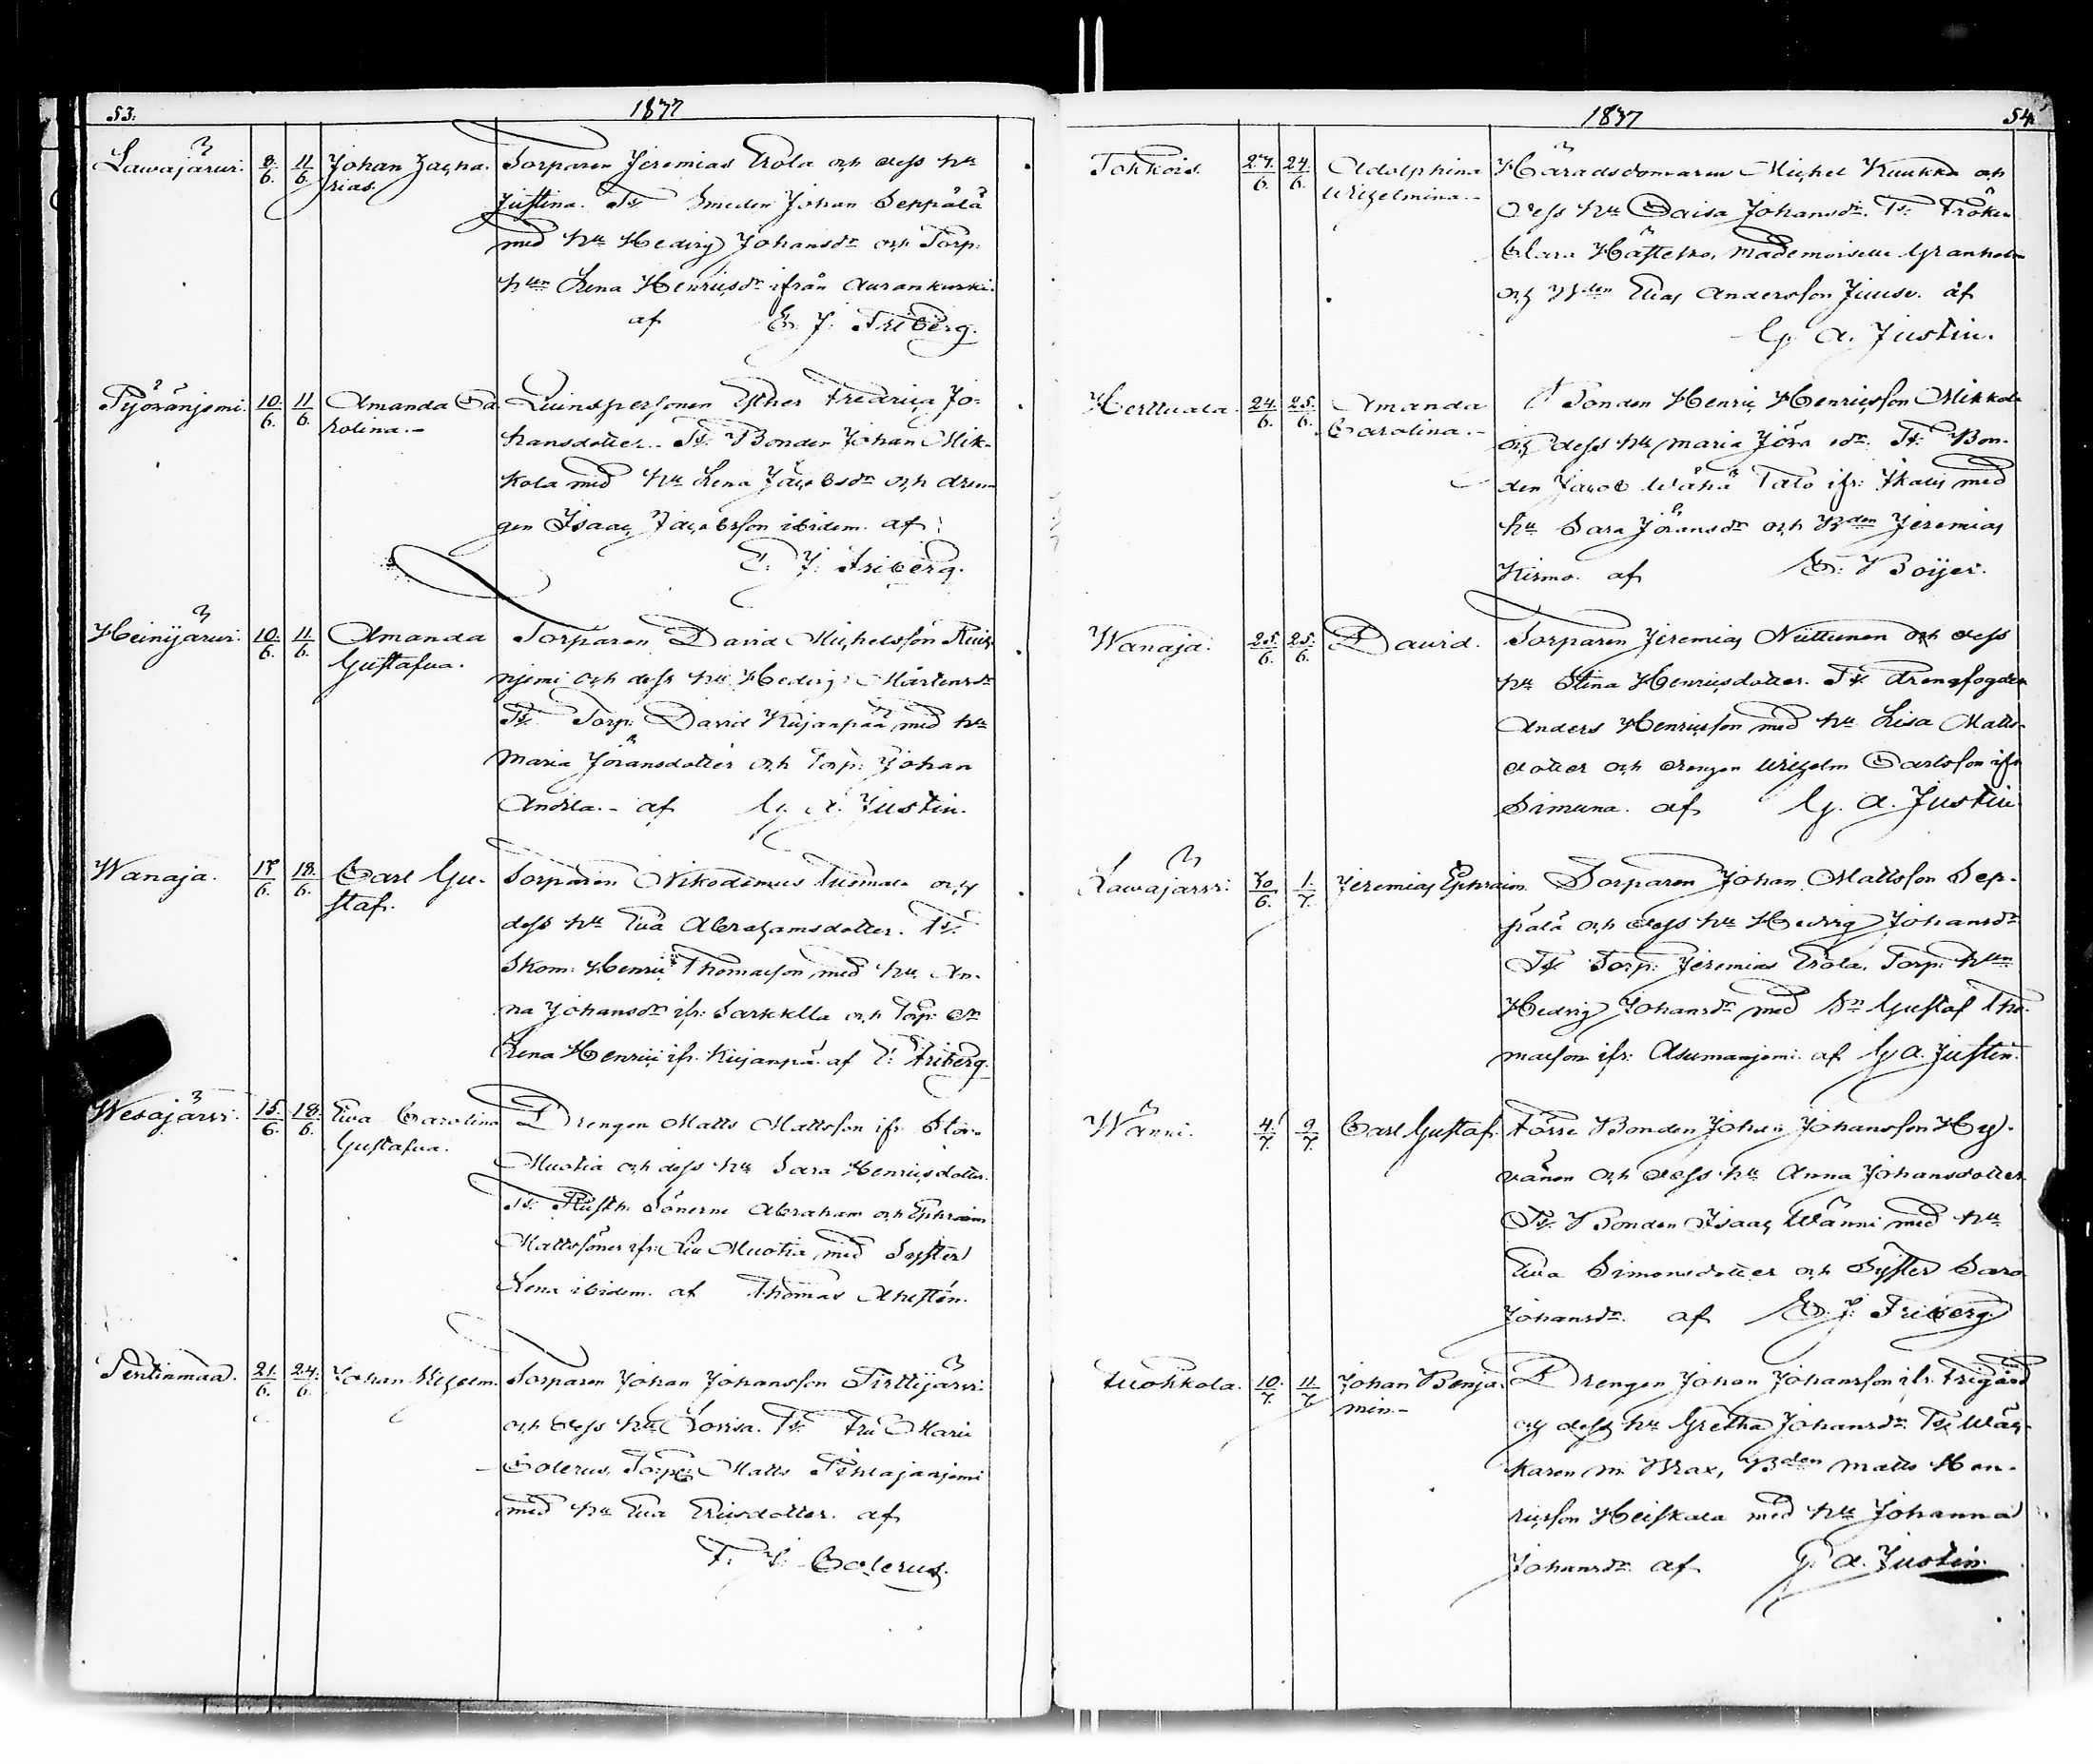 53.
1837
Lawajärwi. 8/6. 11/6 Johan Zacha- Torparen Jeremias Erola och dess hu
rias. Justina. Tt: Smeden Johan Seppälä
med hu Hedvig Johansdr och Torp:
hun Lena Henricsdr ifrån Aurankurki.
af E. J. Friberg.
Pyöränjemi. 10/6. 11/6. Amanda Ca- Qvinspersonen Esther Fredrica Jo-
rolina.- hansdotter.- Tt: Bonden Johan Mik-
kola med hu Lena Jacobsdr och dren-
gen Isaac Jacobsson ibidem. af
E. J. Friberg.
Heinijärwi. 10/6. 11/6. Amanda Torparen David Michelsson
Gustafva. njemi och dess hu Hedvig Mårtensdr
Tt: Torp: David Kujanpää med hu
Maria Jöransdotter och Torp: Johan
Andila.- af G. A. Justin.
Wanaja. 17/6. 18/6. Carl Gu- Torparen Nikodemus Tuomala och
staf. dess hu Eva Abrahamsdotter. Tt:
Skom: Henric Thomasson med hu An-
na Johansdr ifr: Sarkkila och Torp:
Lena Henric ifr. Kujanpä. af E. Friberg.
Wesajärwi. 15/6. 18/6. Eva Carolina Drengen Matts Mattsson ifr Stor-
Gustafva. Muotia och dess hu Sara Henricsdotter.
Tt: Rusth: Sönerne Abraham och Ephraim
Mattssöner ifr: Muotia med Syster
Lena ibidem. af Thomas
Pentinmaa. 21/6. 24/6. Johan Wilhelm. Torparen Johan Johansson Pirttijärwi
och dess hu Lovisa. Tt: Fru Maria
Polerus, Torp: Matts
med hu Eva Ericsdotter. af
F. J. Polerus.
1837
54.
Tokkois. 24/6. Adolphina Häradsdomaren Michel Kuukka och
Wilhelmina.- dess hu Caisa Johansdr. Tt: Fröken
Clara Hästesko, Mademoiselle Granholm
och Bden Elias Andersson Juuse. af
G. A. Justin.
Herttuala. 24/6. 25/6. Amanda Bonden Henric Henricsson Mikkola
Carolina.- och dess hu Maria Jöransdr. Tt: Bon-
den Jacob Wähä Tato ifr: Ikalis med
hu Sara Jöransdr och Bden Jeremias
Kirmo. af C. Boijer.
Wanaja. 25/6. 25/6. David. Torparen Jeremias Niittunen och dess
hu Stina Henricsdotter. Tt: Drengfogden
Anders Henricsson med hu Lisa Matts-
dotter och drengen Wilhelm Carlsson ifr
Simuna. af G. A. Justin.
Lawajärwi. 30/6. 1/7. Jeremias Ephraim. Torparen Johan Mattsson Sep-
pälä och dess hu Hedvig Johansdr
Tt: Torp: Jeremias Erola, Torp: hun
Hedvig Johansdr med Sn Gustaf Tho-
masson ifr: Asumanjemi. af G A. Justin.
Wänni. 4/7. 9/7. Carl Gustaf. Förre Bonden Johan Johansson Hy-
vänen och dess hu Anna Johansdotter
Tt: Bonden Isaac Wänni med hu
Eva Simonsdotter och Syster Sara
Johansdr. af E. J. Friberg.
Tuohkola. 10/7. 11/7. Johan Benja- Drengen Johan Johansson ifr. Frigård
min.- och dess hu Gretha Johansdr. Tt: Wäk-
karen M. Brax, Bden Matts Hen-
ricsson Heiskala med hu Johanna
Johansdr. af G. A. Justin.